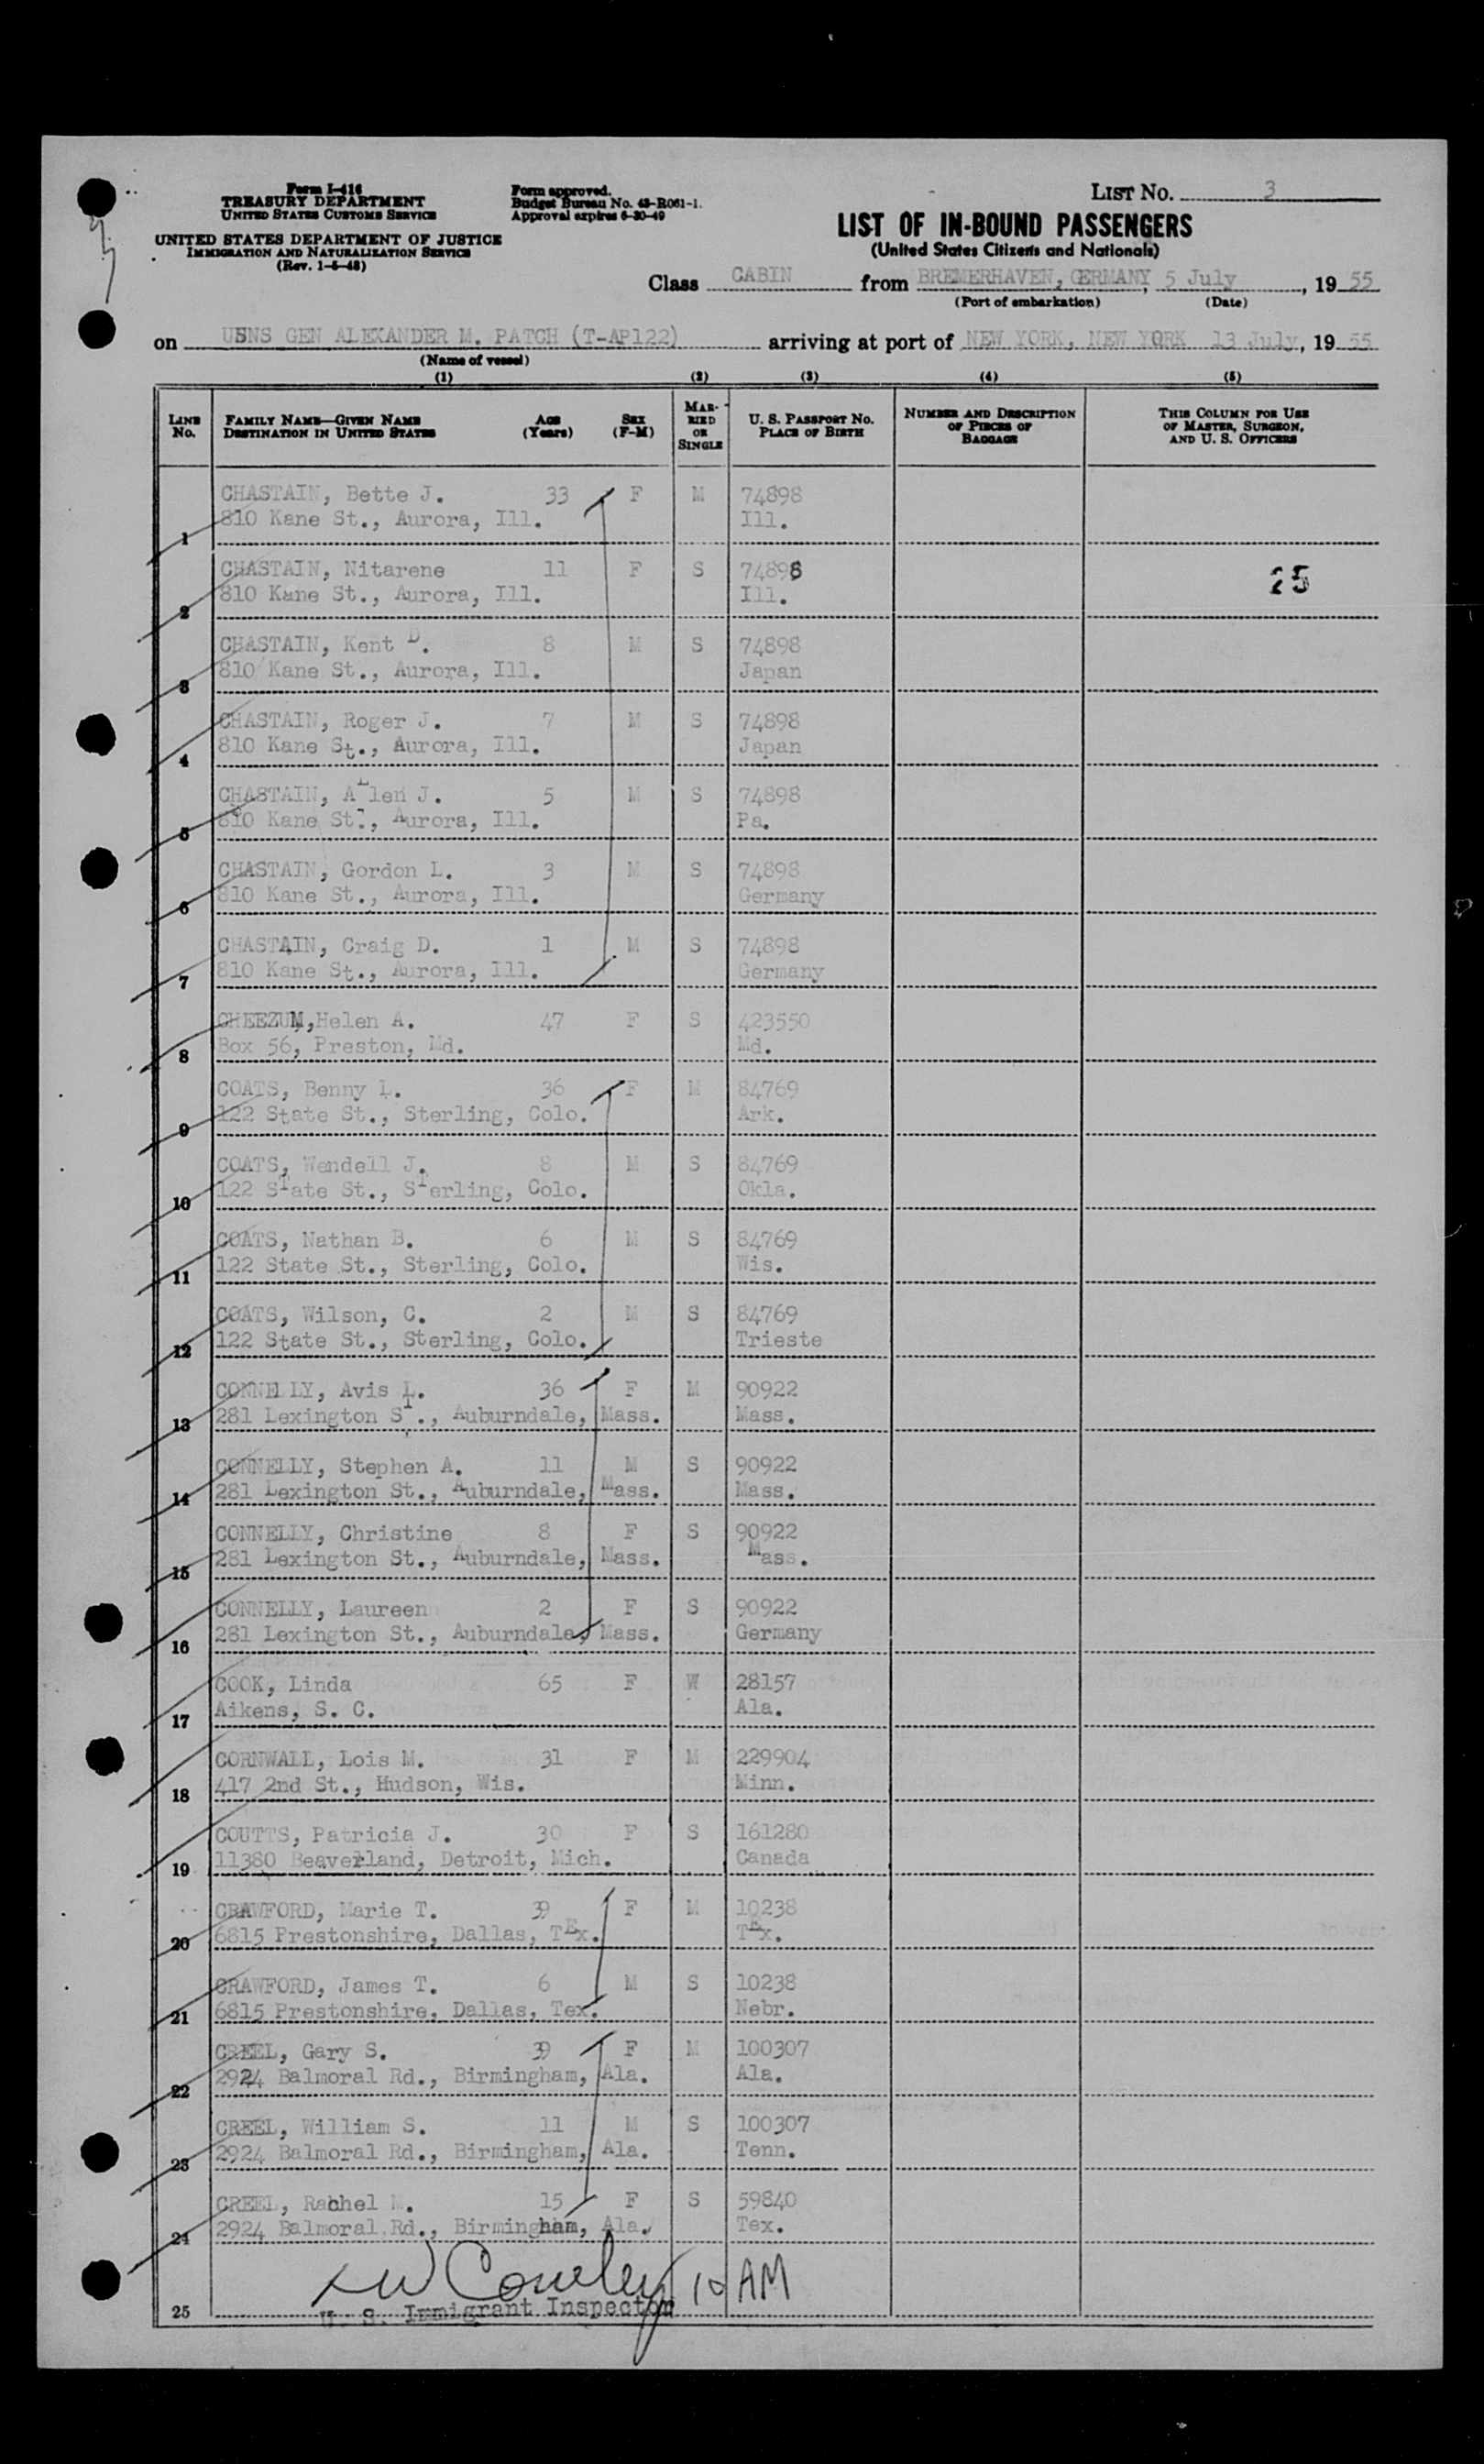 Form I-416
TREASURY DEPARTMENT
UNITED STATES CUSTOMS SERVICE
UNITED STATES DEPARTMENT OF JUSTICE
IMMIGRATION AND NATURALIZATION SERVICE
(Rev. 1-5-48)
Form approved.
Budget Bureau No. 43-R061-1.
Approval expires 6-30-49
LIST NO. 3
LIST OF IN-BOUND PASSENGERS
(United States Citizens and Nationals)
Class CABIN from BREMERHAVEN, GERMANY, 5 July, 19 55
(Port of embarkation) (Date)
on USNS GEN ALEXANDER M. PATCH (T-AP122) arriving at port of NEW YORK, NEW YORK 13 July, 19 55
(Name of vessel)
(1) (2) (3) (4) (5)
LINE No. FAMILY NAME—GIVEN NAME DESTINATION IN UNITED STATES AGE (Years) SEX (F-M) MARRIED OR SINGLE U. S. PASSPORT NO. PLACE OF BIRTH NUMBER AND DESCRIPTION OF PIECES OF BAGGAGE THIS COLUMN FOR USE OF MASTER, SURGEON, AND U. S. OFFICERS
CHASTAIN, Bette J. 33 F M 74898
1 810 Kane St., Aurora, Ill. Ill.
CHASTAIN, Nitarene 11 F S 74898 25
2 810 Kane St., Aurora, Ill. Ill.
CHASTAIN, Kent D. 8 M S 74898
3 810 Kane St., Aurora, Ill. Japan
CHASTAIN, Roger J. 7 M S 74898
4 810 Kane St., Aurora, Ill. Japan
CHASTAIN, ALlen J. 5 M S 74898
5 810 Kane St., Aurora, Ill. Pa.
CHASTAIN, Gordon L. 3 M S 74898
6 810 Kane St., Aurora, Ill. Germany
CHASTAIN, Craig D. 1 M S 74898
7 810 Kane St., Aurora, Ill. Germany
CHEEZUM,Helen A. 47 F S 423550
8 Box 56, Preston, Md. Md.
COATS, Benny L. 36 F M 84769
9 122 State St., Sterling, Colo. Ark.
COATS, Wendell J. 8 M S 84769
10 122 STate St., STerling, Colo. Okla.
COATS, Nathan B. 6 M S 84769
11 122 State St., Sterling, Colo. Wis.
COATS, Wilson, C. 2 M S 84769
12 122 State St., Sterling, Colo. Trieste
CONNELLY, Avis L. 36 F M 90922
13 281 Lexington ST., Auburndale, Mass. Mass.
CONNELLY, Stephen A. 11 M S 90922
14 281 Lexington St., Auburndale, Mass. Mass.
CONNELLY, Christine 8 F S 90922
15 281 Lexington St., Auburndale, Mass. Mass.
CONNELLY, Laureen 2 F S 90922
16 281 Lexington St., Auburndale, Mass. Germany
COOK, Linda 65 F W 28157
17 Aikens, S. C. Ala.
CORNWALL, Lois M. 31 F M 229904
18 417 2nd St., Hudson, Wis. Minn.
COUTTS, Patricia J. 30 F S 161280
19 11380 Beaverland, Detroit, Mich. Canada
CRAWFORD, Marie T. 39 F M 10238
20 6815 Prestonshire, Dallas, TEx. TEx.
CRAWFORD, James T. 6 M S 10238
21 6815 Prestonshire, Dallas, Tex. Nebr.
CREEL, Gary S. 39 F M 100307
22 2924 Balmoral Rd., Birmingham, Ala. Ala.
CREEL, William S. 11 M S 100307
23 2924 Balmoral Rd., Birmingham, Ala. Tenn.
CREEL, Rachel M. 15 F S 59840
24 2924 Balmoral Rd., Birmingham, Ala. Tex.
10 AM
25 U. S. Immigrant Inspector